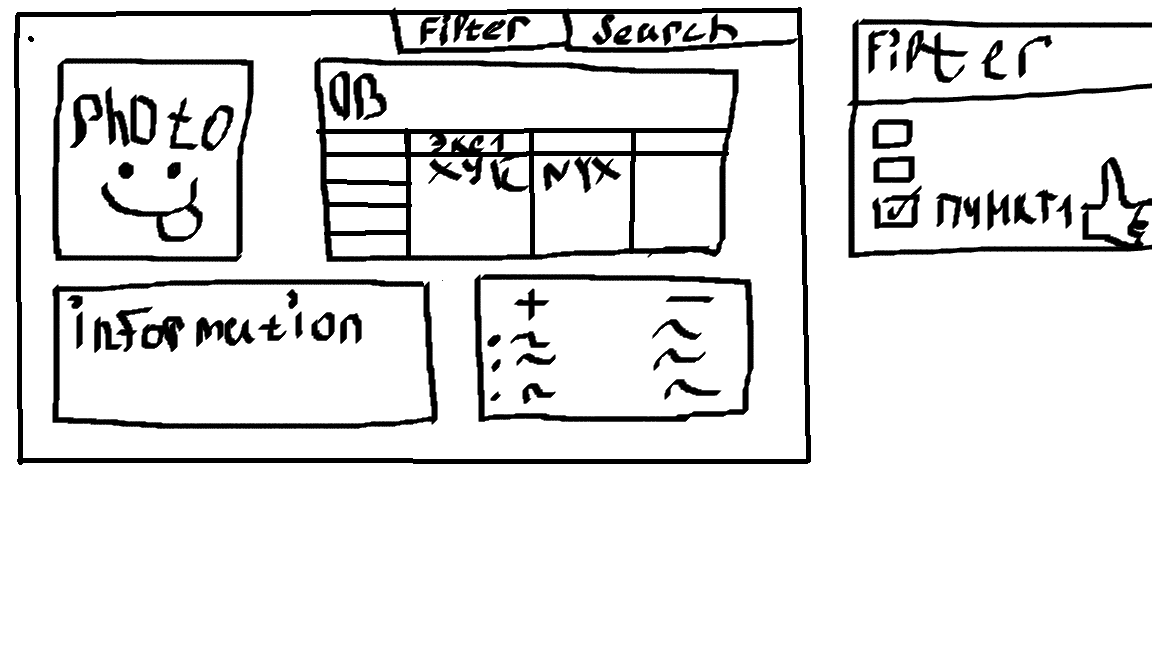 Filter
Search
Photo
DB
экс1
ХУК
NYX
information
+ −
Filter
ПУНКТ1